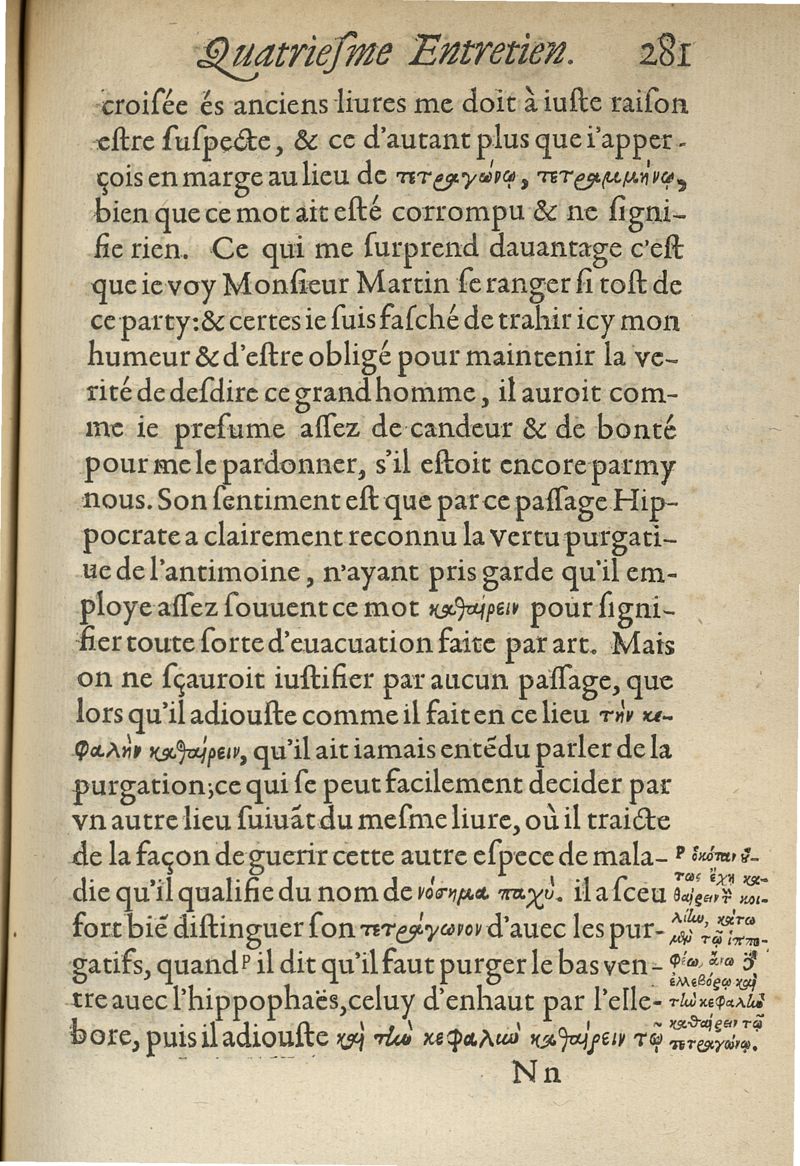 Quatrieſme Entretien. 281
croiſée és anciens liures me doit à iuſte raiſon
eſtre ſuſpecte, & ce d'autant plus que i'apper-
çois en marge au lieu de τετραγώνῳ, τετραμμήνῳ,
bien que ce mot ait eſté corrompu & ne ſigni-
fie rien. Ce qui me ſurprend dauantage c'eſt
que ie voy Monſieur Martin ſe ranger ſi toſt de
ce party: & certes ie ſuis faſché de trahir icy mon
humeur & d'eſtre obligé pour maintenir la ve-
rité de deſdire ce grand homme, il auroit com-
me ie preſume aſſez de candeur & de bonté
pour me le pardonner, s'il eſtoit encore parmy
nous. Son ſentiment eſt que par ce paſſage Hip-
pocrate a clairement reconnu la vertu purgati-
ue de l'antimoine, n'ayant pris garde qu'il em-
ploye aſſez ſouuent ce mot καθαίρειν pour ſigni-
fier toute ſorte d'euacuation faite par art. Mais
on ne ſçauroit iuſtifier par aucun paſſage, que
lors qu'il adiouſte comme il fait en ce lieu τὴν κε-
φαλὴν καθαίρειν, qu'il ait iamais entẽdu parler de la
purgation; ce qui ſe peut facilement decider par
vn autre lieu ſuiuãt du meſme liure, où il traicte
de la façon de guerir cette autre eſpece de mala-
die qu'il qualifie du nom de νόσημα παχύ. il a ſceu
fort biẽ diſtinguer ſon τετράγωνον d'auec les pur-
gatifs, quand ᵖ il dit qu'il faut purger le bas ven-
tre auec l'hippophaës, celuy d'enhaut par l'elle-
bore, puis il adiouſte καὶ τὴν κεφαλὴν καθαίρειν τῷ
ᵖ ὁκόταν οὕ-
τως ἔχῃ κα-
θαίρειν τ̀ κοι-
λίην, κάτω
μὲν τῷ ἱππο-
φέω, ἄνω δ̓
ἐλλεβόρῳ καὶ
τὴν κεφαλὴν
καθαίρειν τῷ
τετραγώνῳ.
Nn